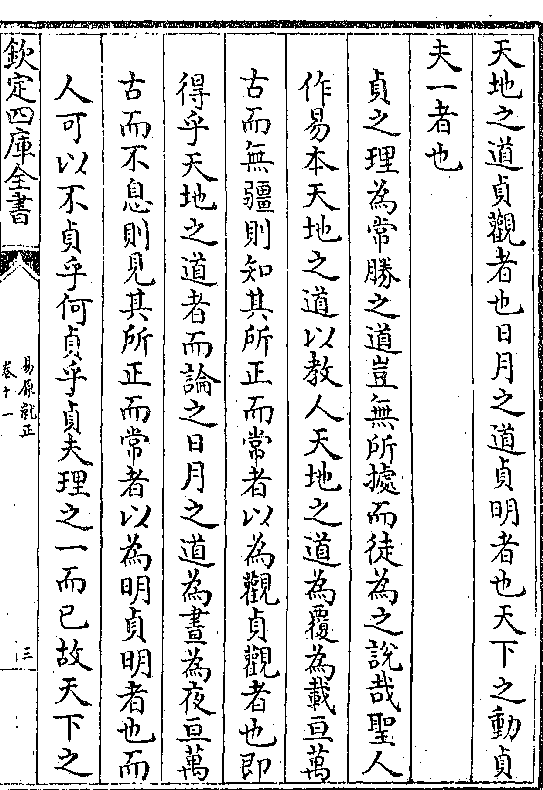 天地之道貞觀者也日月之道貞明者也天下之動貞
夫一者也
貞之理為常勝之道豈無所據而徒為之說哉聖人
作易本天地之道以教人天地之道為覆為載亘萬
古而無疆則知其所正而常者以為觀貞觀者也即
得乎天地之道者而論之日月之道為晝為夜亘萬
古而不息則見其所正而常者以為明貞明者也而
人可以不貞乎何貞乎貞夫理之一而已故天下之
欽定四庫全書
易原就正
卷十一
三